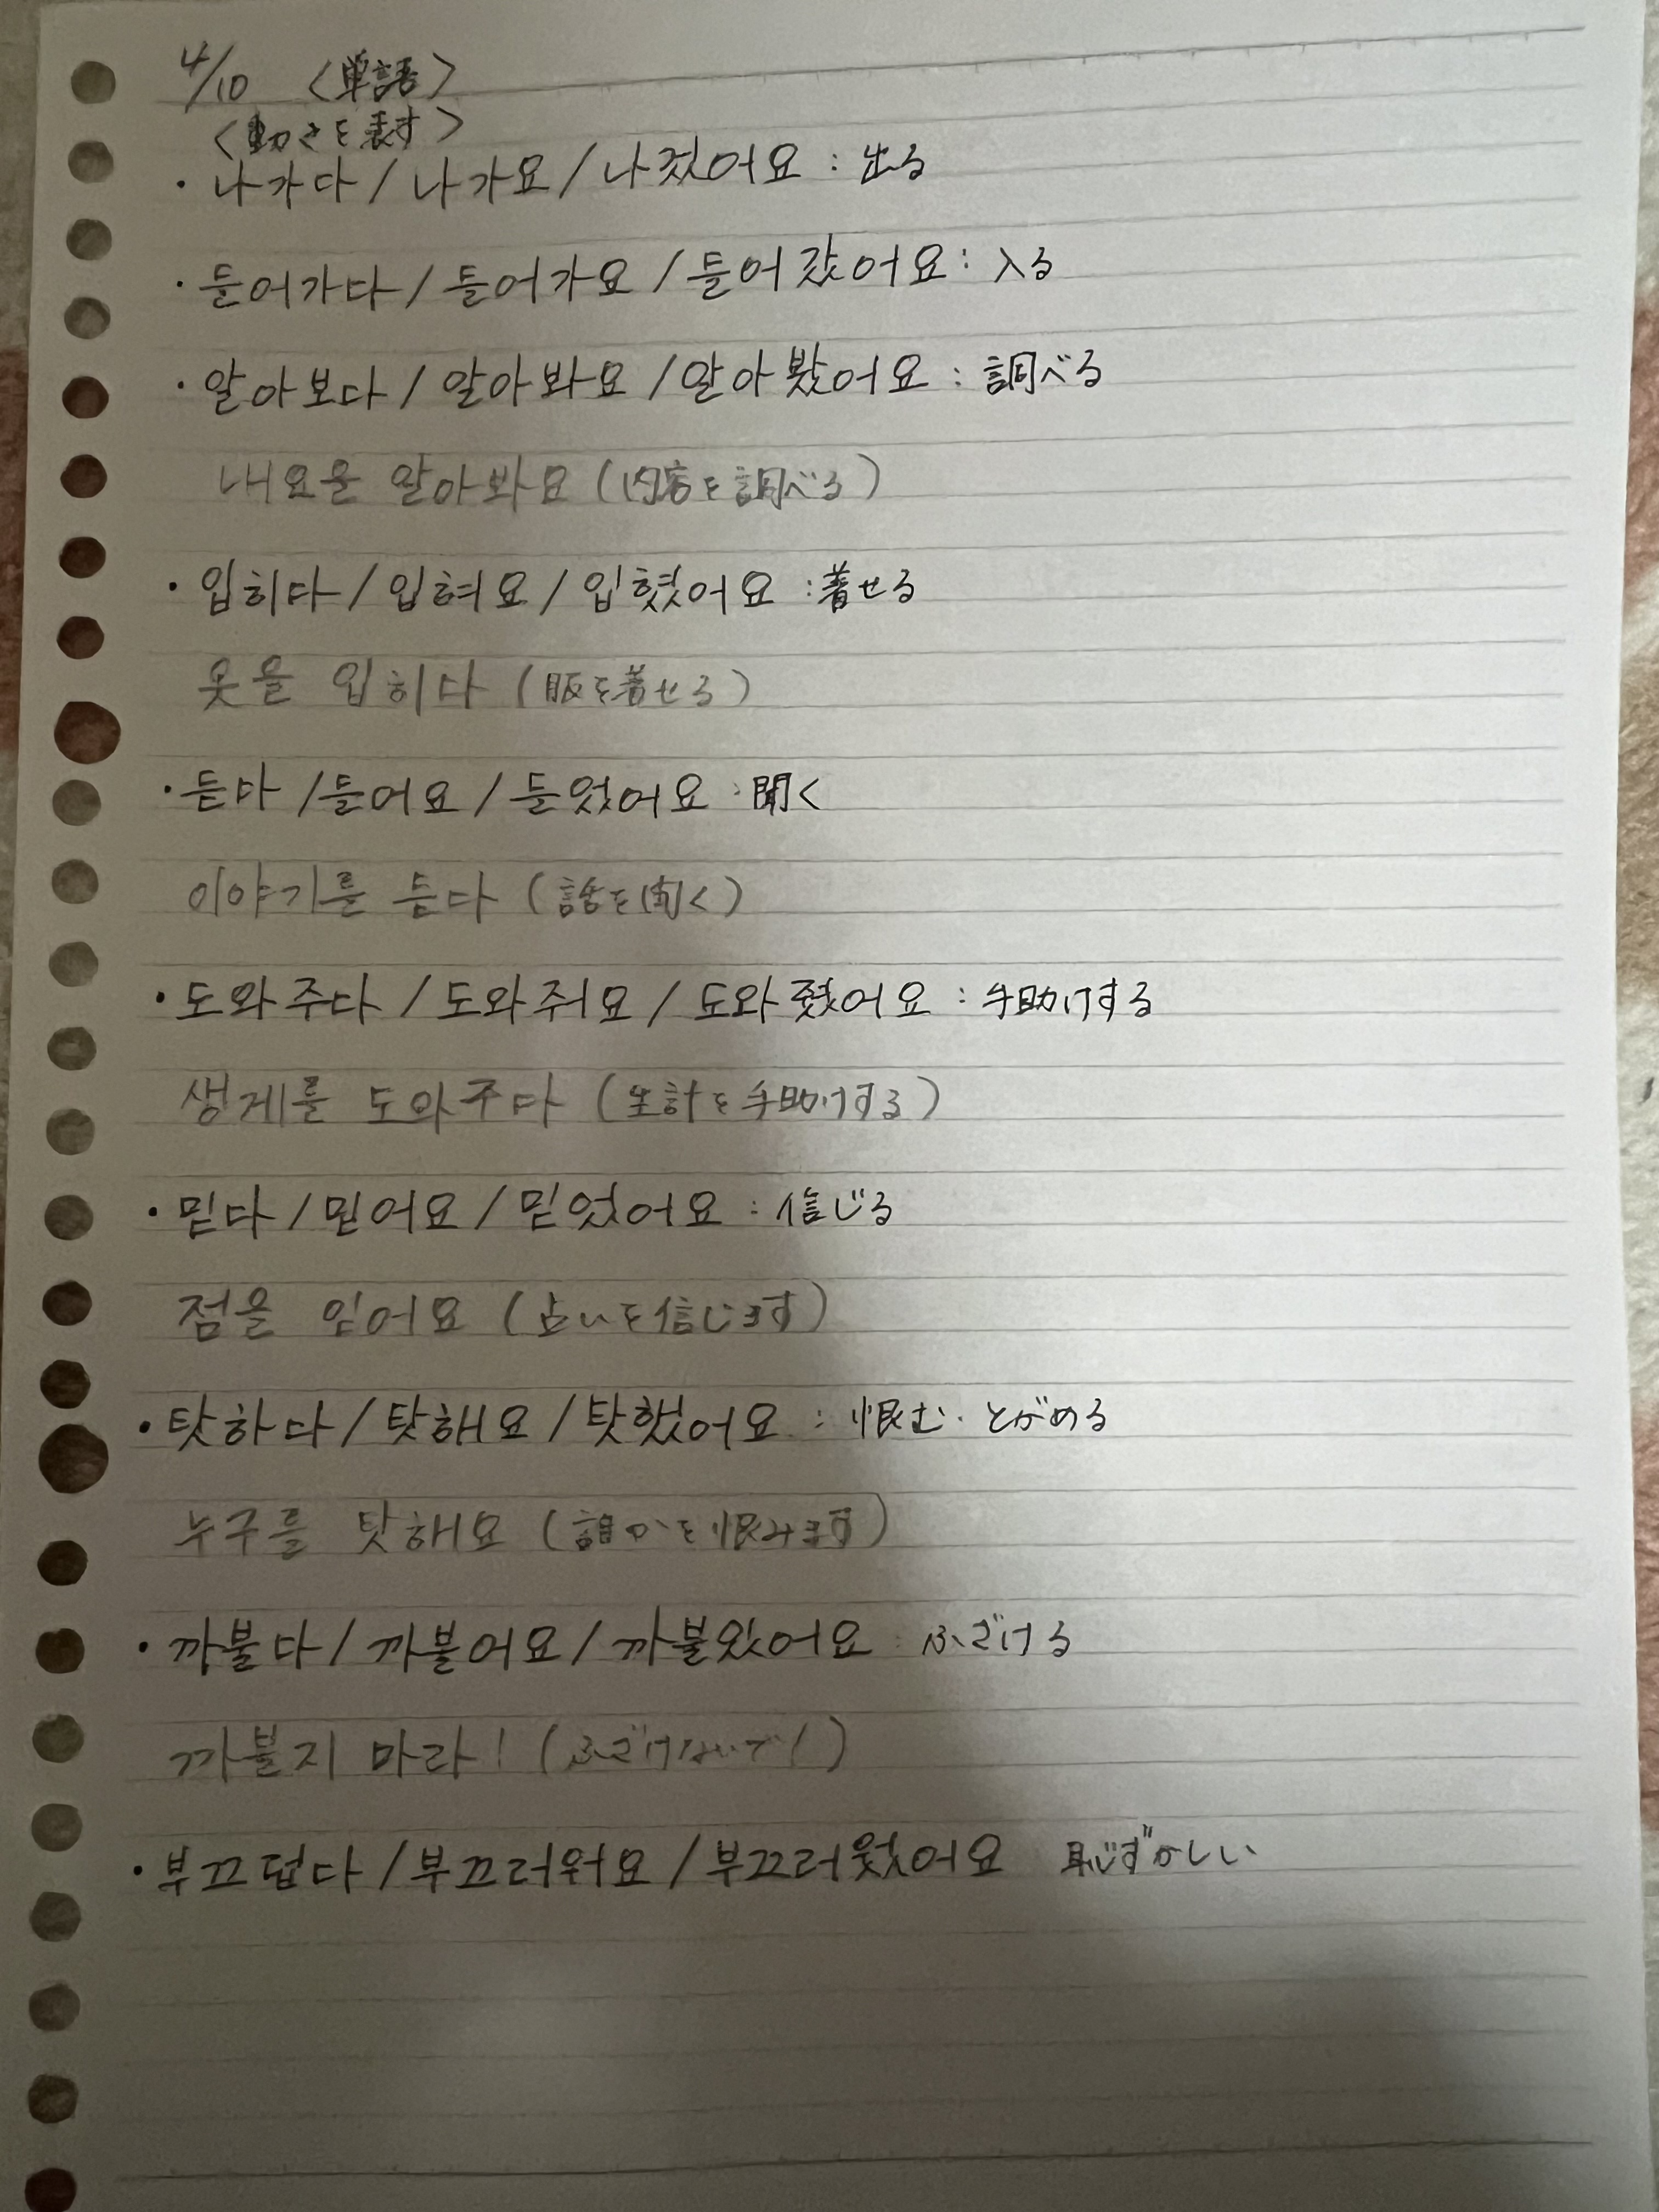 4/10 〈単語〉
〈動きを表す〉
・나가다 / 나가요 / 나겄어요 : 出る
・들어가다 / 들어가요 / 들어갔어요 : 入る
・알아보다 / 알아봐요 / 알아봤어요 : 調べる
내요을 알아봐요 (内容を調べる)
・입히다 / 입혀요 / 입혔어요 : 着せる
옷을 입히다 (服を着せる)
・듣다 / 들어요 / 들었어요 : 聞く
이야기를 듣다 (話を聞く)
・도와주다 / 도와줘요 / 도와줬어요 : 手助けする
생계를 도와주다 (生計を手助けする)
・믿다 / 믿어요 / 믿었어요 : 信じる
점을 믿어요 (占いを信じます)
・탓하다 / 탓해요 / 탓했어요 : 恨む・とがめる
누구를 탓해요 (誰かを恨みます)
・까불다 / 까불어요 / 까불었어요 : ふざける
까불지 마라! (ふざけないで!)
・부끄럽다 / 부끄러워요 / 부끄러웠어요 恥ずかしい